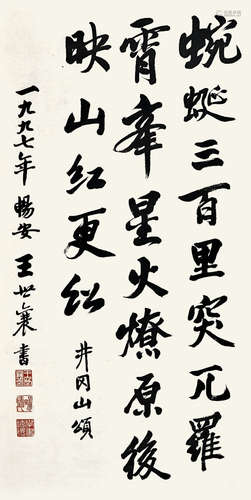 蜿蜒三百里突兀羅
霄峯星火燎原後
映山红更红
井冈山頌
一九九七年暢安王世襄書